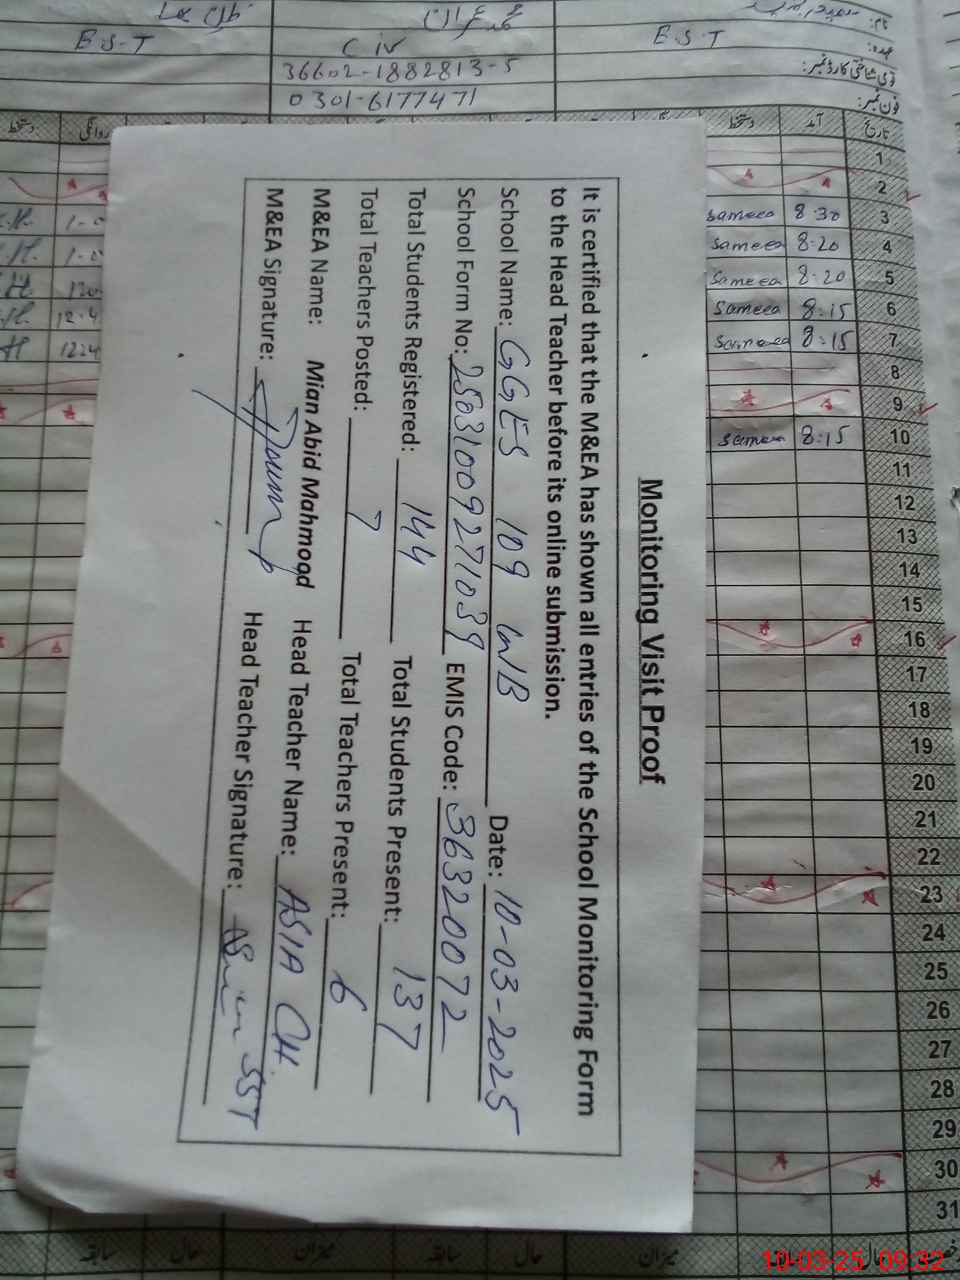 نام:
عہدہ:
E.S.T
C IV
E.S.T
قومی شناختی کارڈ نمبر:
36602-1882813-5
فون نمبر:
0301-6177471
تاریخ آمد دستخط
روانگی دستخط
1
2
3 8:30 sameea
4 8:20 sameea
5 8:20 sameea
6 8:15 sameea
7 8:15 sameea
8
9
10 8:15 sameea
11
12
13
14
15
16
17
18
19
20
21
22
23
24
25
26
27
28
29
30
31
میزان حال سابقہ میزان حال سابقہ
Monitoring Visit Proof
It is certified that the M&EA has shown all entries of the School Monitoring Form
to the Head Teacher before its online submission.
School Name: GGES 109 WB Date: 10-03-2025
School Form No: 25031009271039 EMIS Code: 36320072
Total Students Registered: 144 Total Students Present: 137
Total Teachers Posted: 7 Total Teachers Present: 6
M&EA Name: Mian Abid Mahmood Head Teacher Name: ASIA CH.
M&EA Signature: Head Teacher Signature: SST
10-03-25 09:32